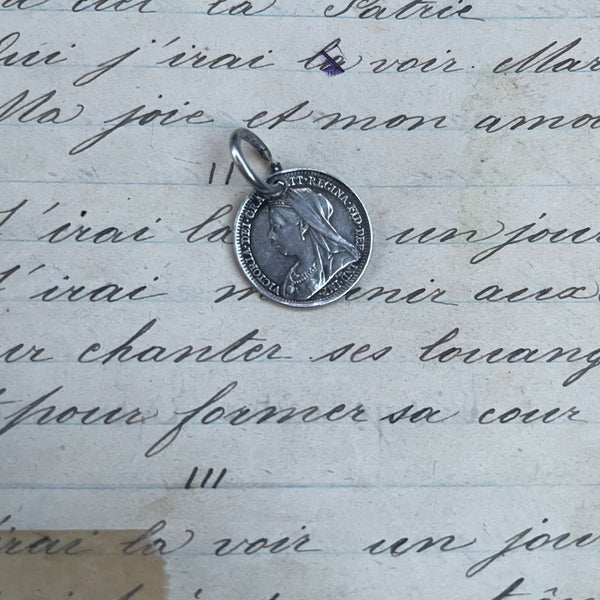 la Patrie
Qui j'irai la voir. Mar
Ma joie et mon amou
II
J'irai la un jour
J'irai m nir aux
ur chanter ses louang
t pour former sa cour
III
J'irai la voir un jou
VICTORIA·DEI·GRA TT·REGINA·FID·DEF·IND·IMP·